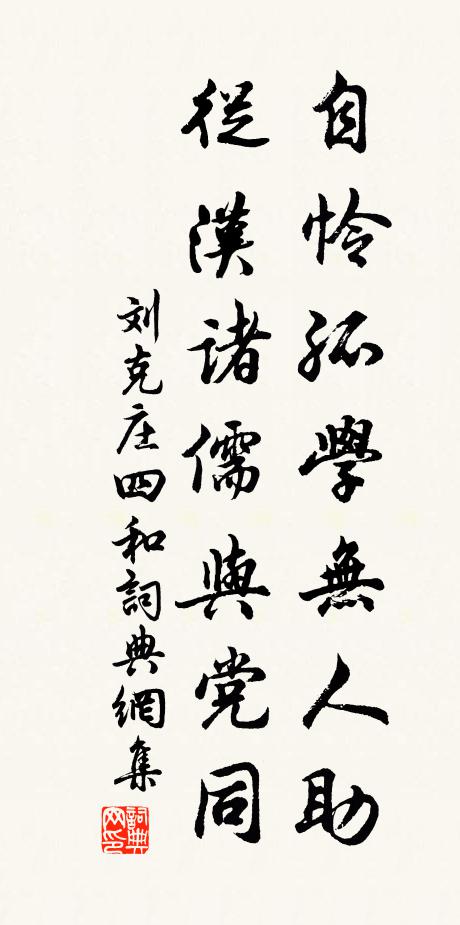 自怜孤學無人助
從漢諸儒與党同
刘克庄四和詞典網集
詞典网印